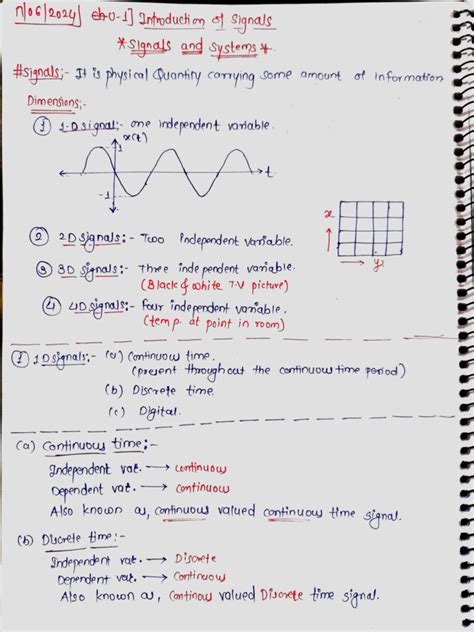 11/06/2024] ch-0-1] Introduction of Signals
* Signals and Systems *
#Signals:- It is physical Quantity carrying some amount of information
Dimensions:-
① 1-D signal:- one independent variable.
x(t)
1
t
-1
② 2D Signals:- Two independent variable.
x
y
③ 3D Signals:- Three independent variable.
(Black & white T.V picture)
④ 4D Signals:- four independent variable.
(temp. at point in room)
① 1D signals:- (a) Continuous time.
(present throughout the continuous time period)
(b) Discrete time.
(c) Digital.
(a) Continuous time:-
Independent var. → continuous
Dependent var. → continuous
Also known as, continuous valued continuous time signal.
(b) Discrete time:-
Independent var. → Discrete
Dependent var. → Continuous
Also known as, Continous valued Discrete time signal.